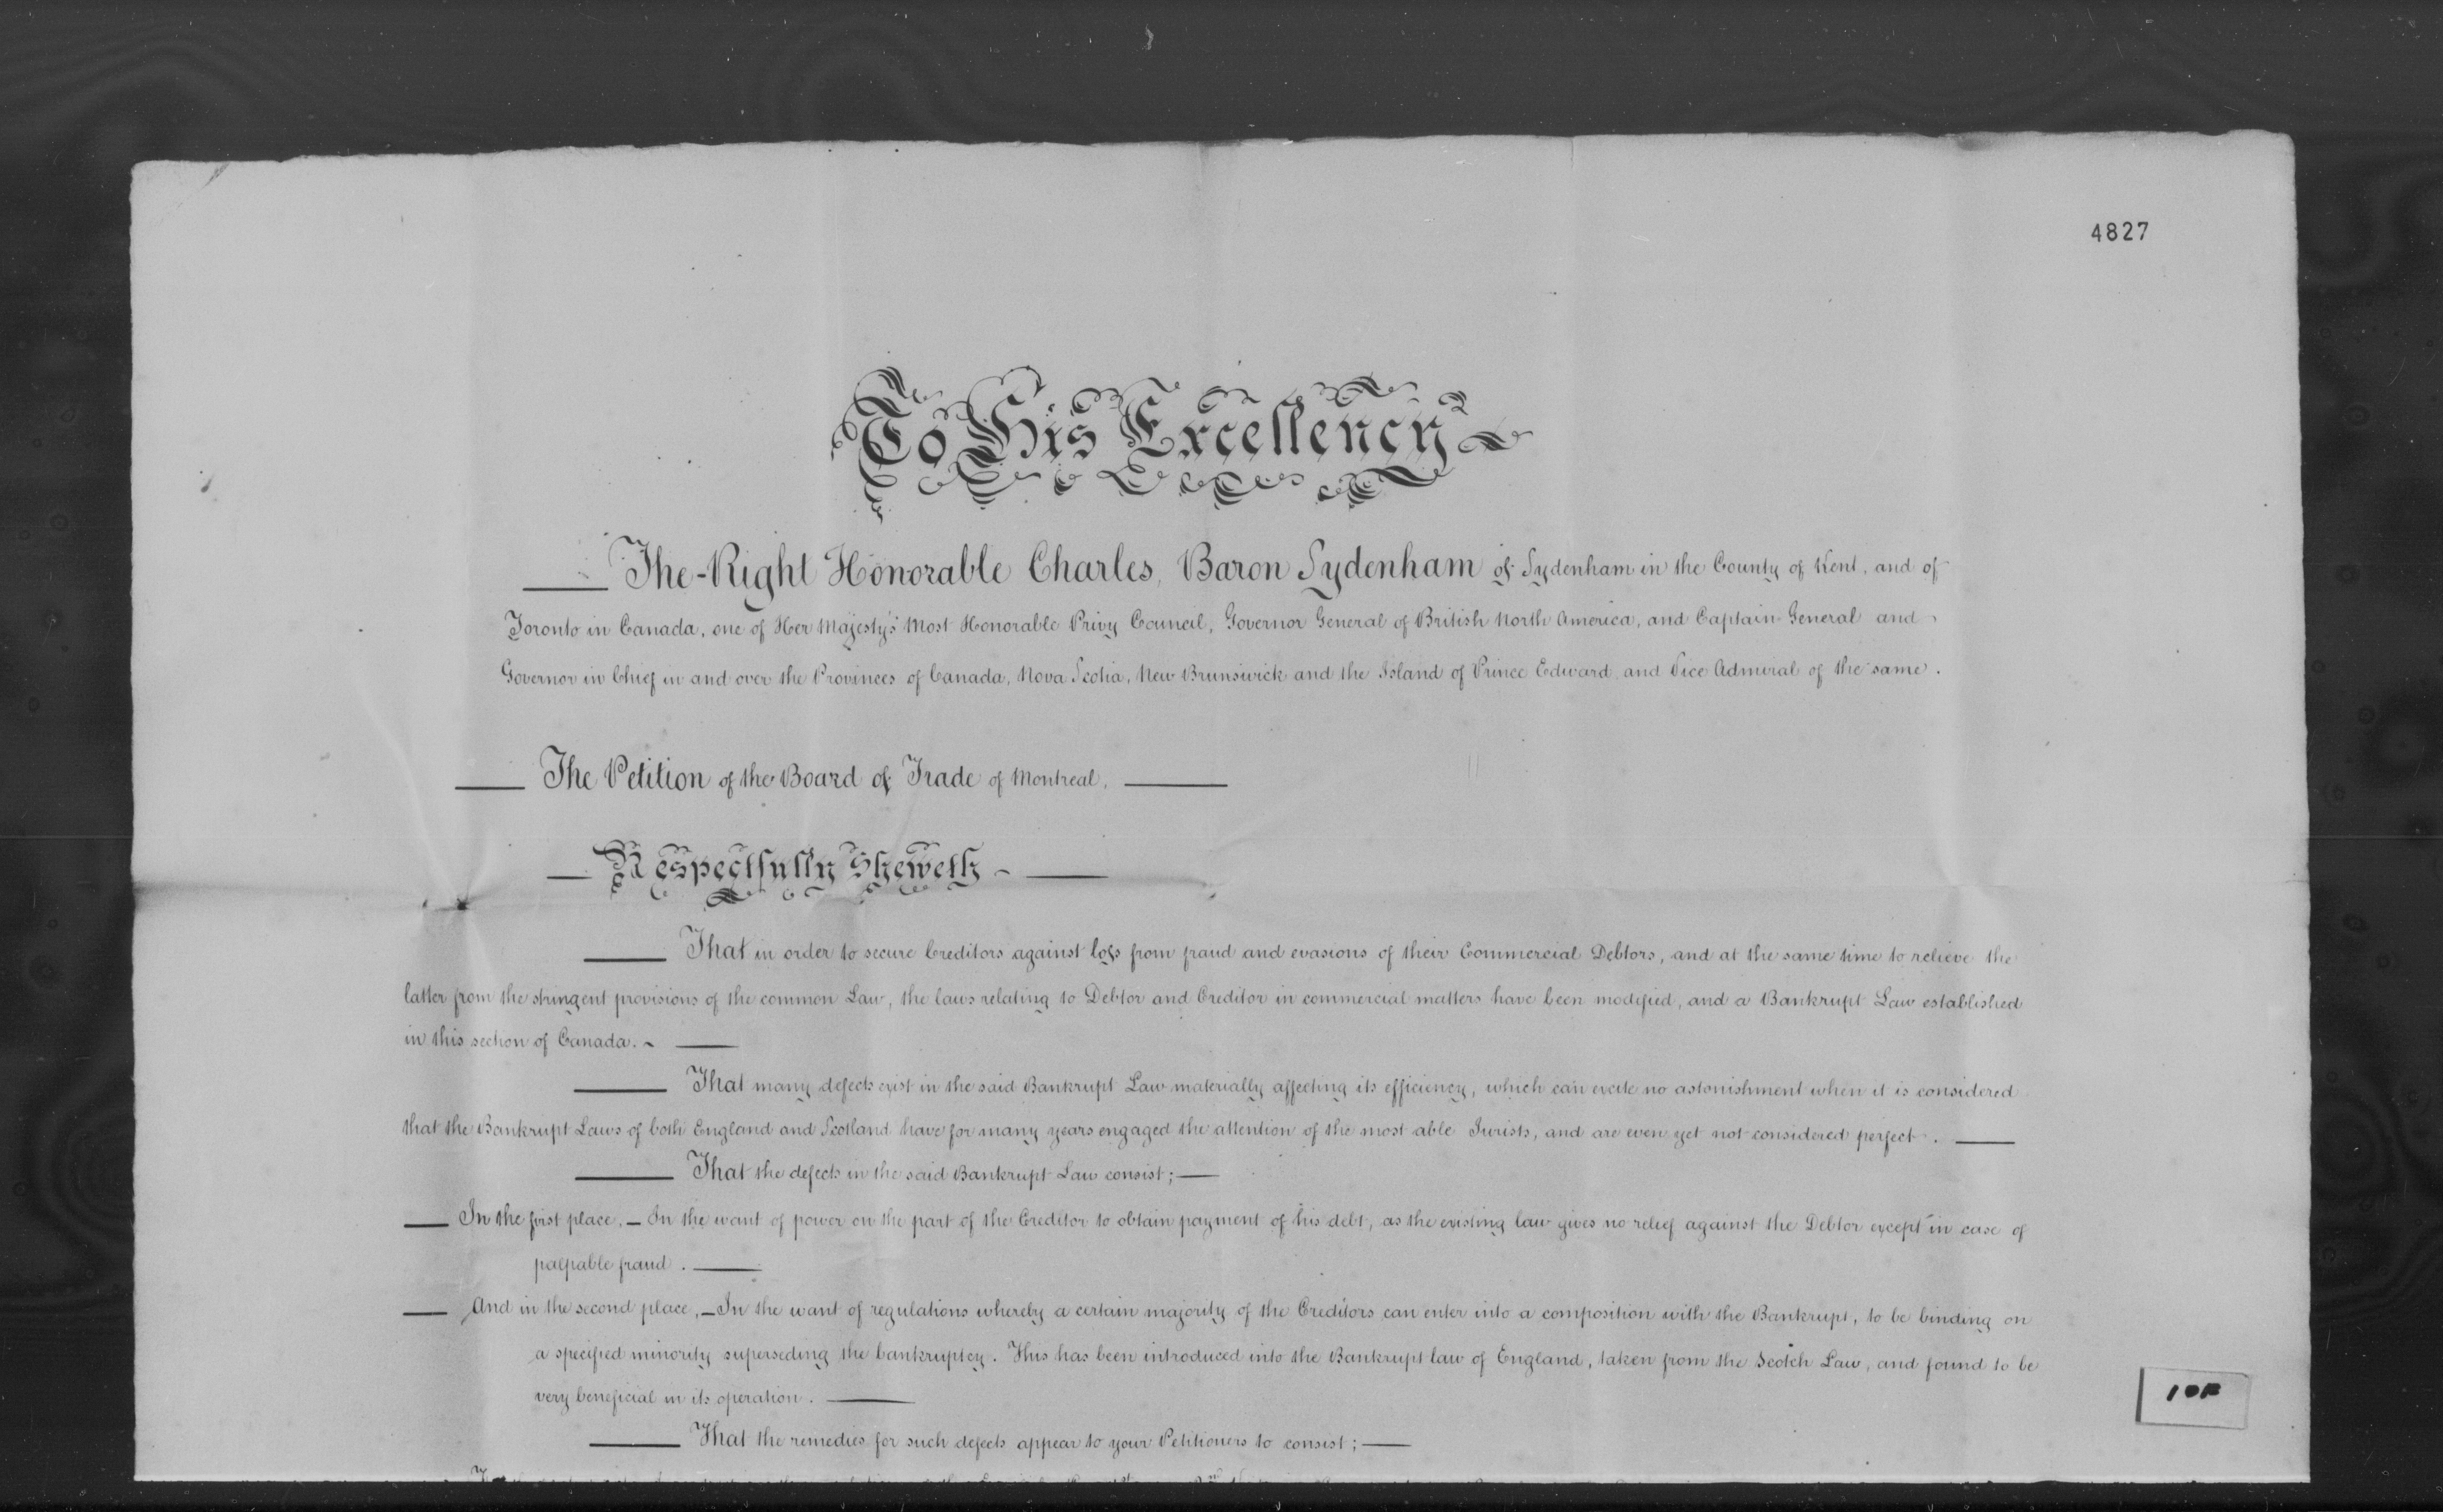 4827
To His Excellency
The Right Honorable Charles, Baron Sydenham of Sydenham in the County of Kent, and of
Toronto in Canada, one of Her Majesty's Most Honorable Privy Council, Governor General of British North America, and Captain General and
Governor in Chief in and over the Provinces of Canada, Nova Scotia, New Brunswick and the Island of Prince Edward and Vice Admiral of the same.
The Petition of the Board of Trade of Montreal,
Respectfully Sheweth
That in order to secure Creditors against loss from fraud and evasions of their Commercial Debtors, and at the same time to relieve the
latter from the stringent provisions of the common Law, the laws relating to Debtor and Creditor in commercial matters have been modified, and a Bankrupt Law established
in this section of Canada.
That many defects exist in the said Bankrupt Law materially affecting its efficiency, which can excite no astonishment when it is considered
that the Bankrupt Laws of both England and Scotland have for many years engaged the attention of the most able Jurists, and are even yet not considered perfect.
That the defects in the said Bankrupt Law consist;
In the first place, — In the want of power on the part of the Creditor to obtain payment of his debt, as the existing law gives no relief against the Debtor except in case of
palpable fraud.
And in the second place, — In the want of regulations whereby a certain majority of the Creditors can enter into a composition with the Bankrupt, to be binding on
a specified minority superseding the bankruptcy. This has been introduced into the Bankrupt law of England, taken from the Scotch Law, and found to be
very beneficial in its operation.
That the remedies for such defects appear to your Petitioners to consist;